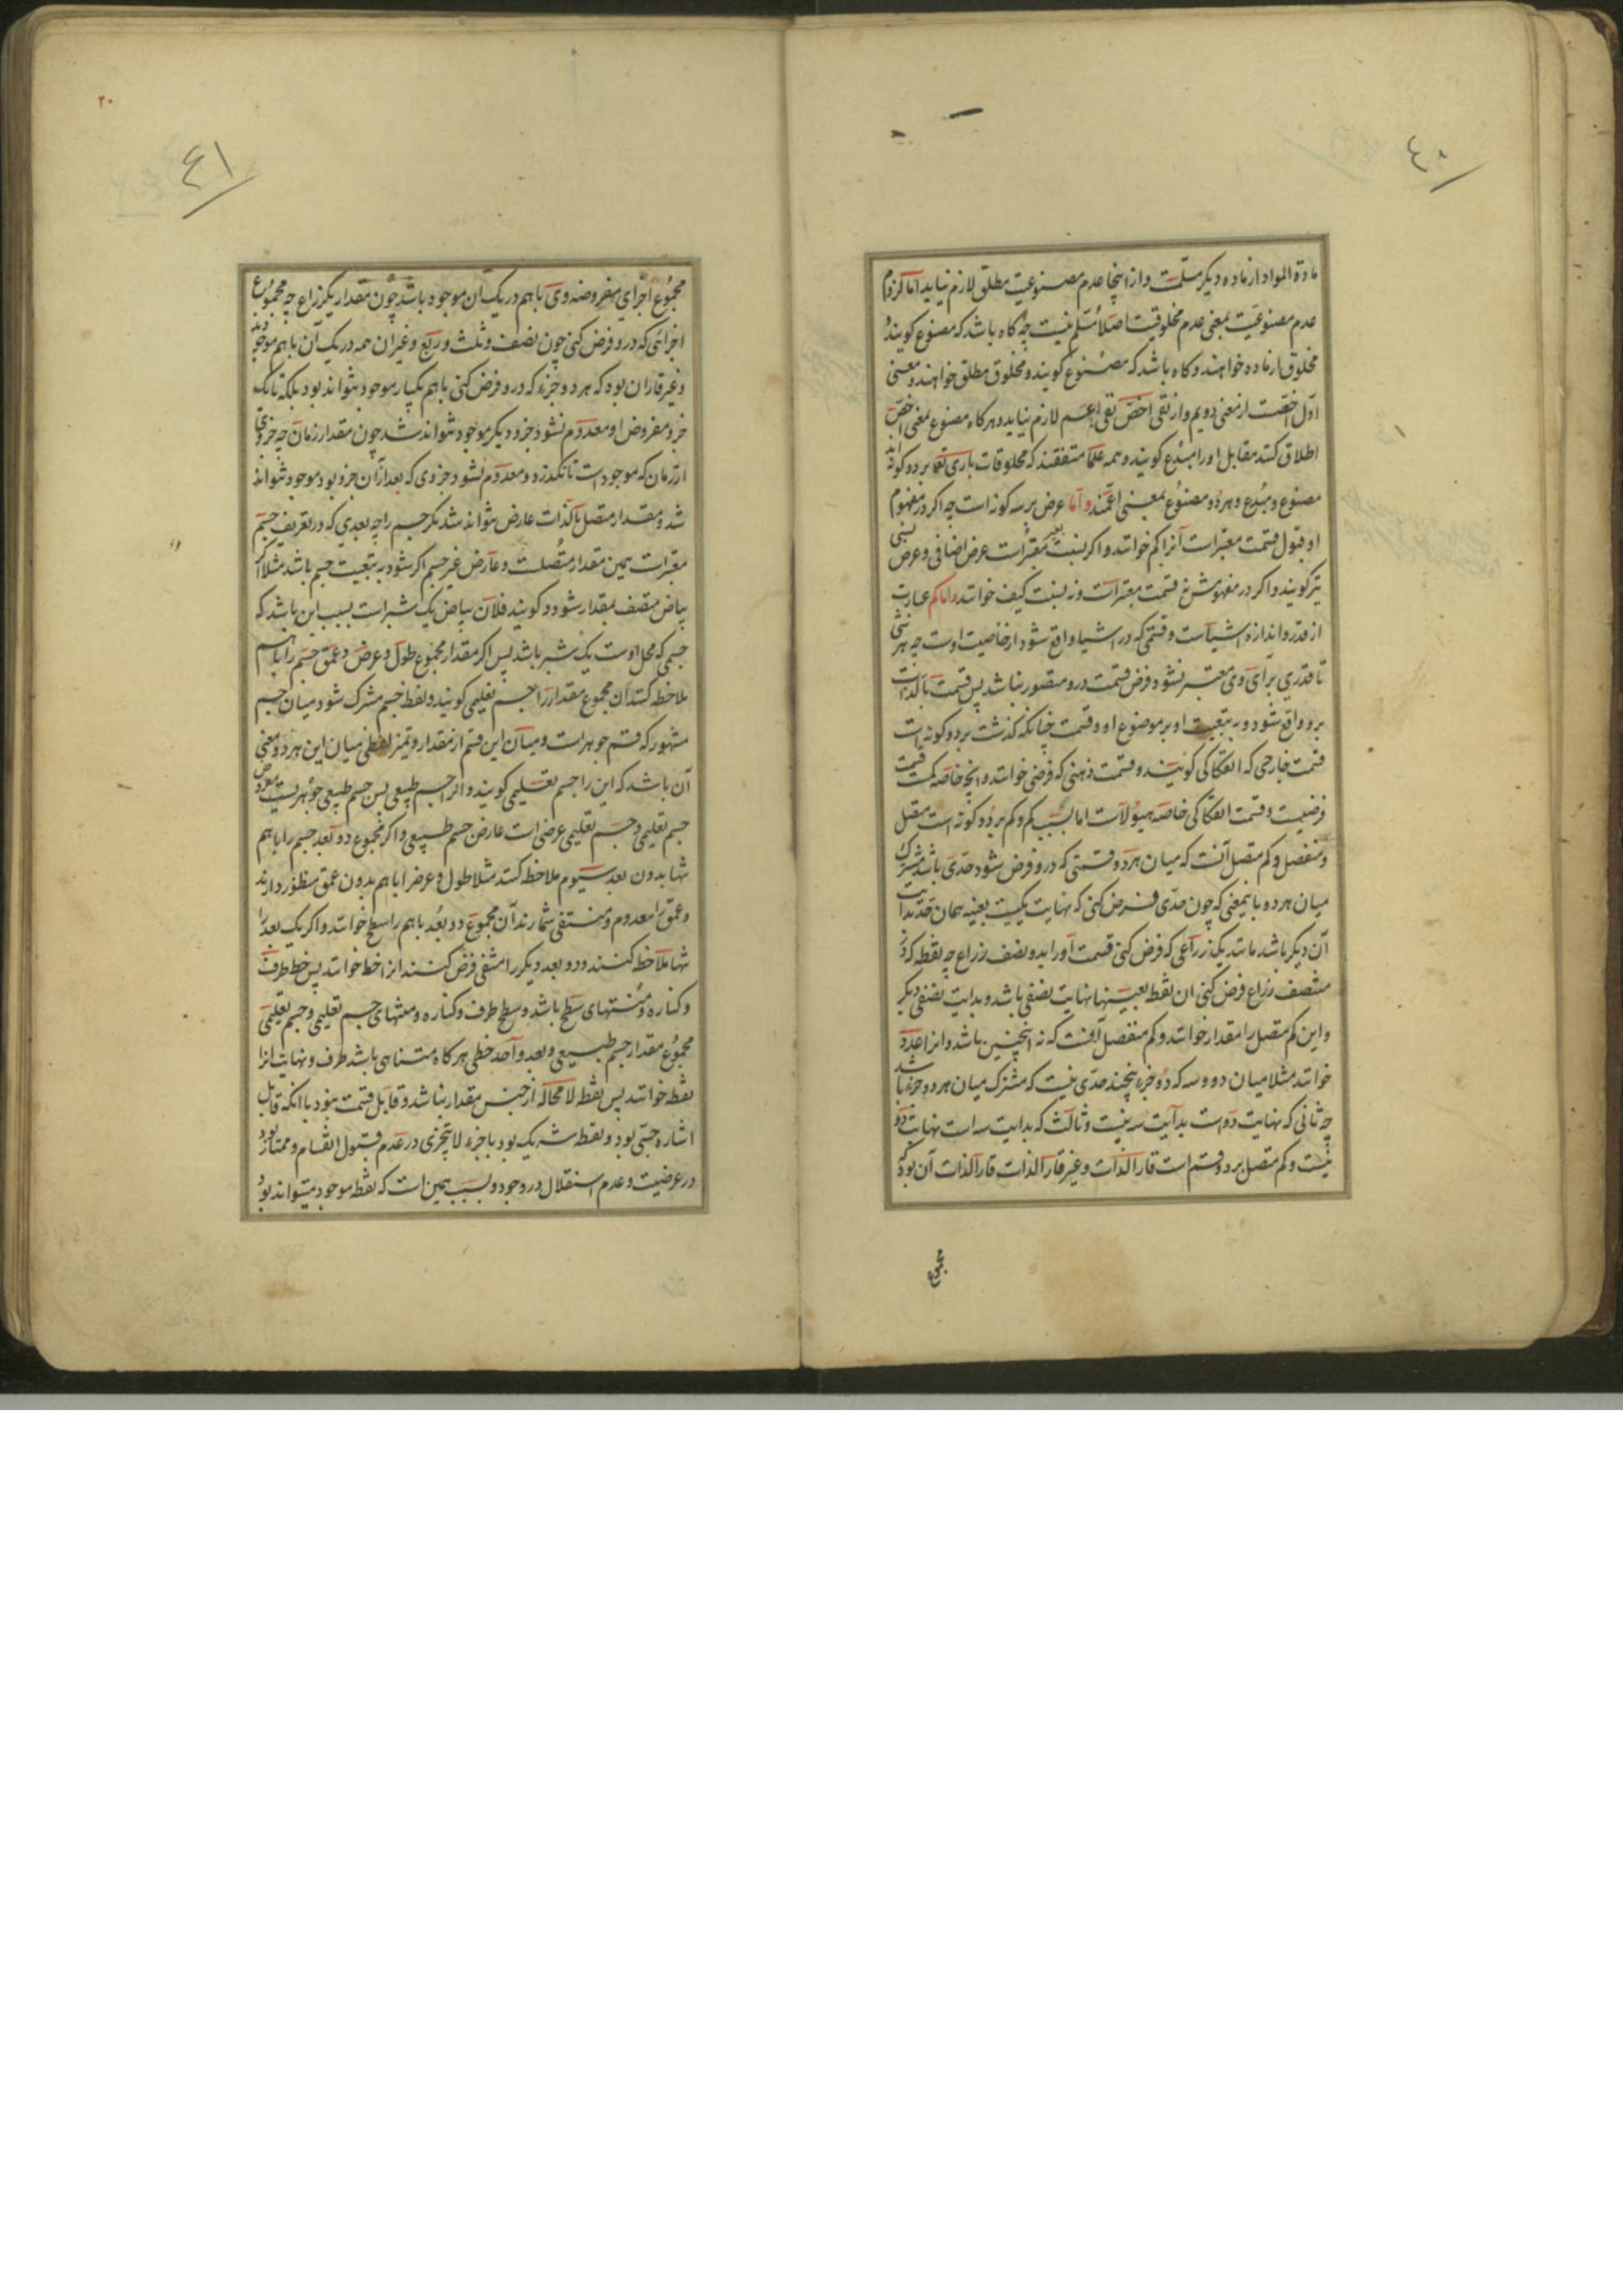 ٤٠
مادة المواد از ماده دیکر مسلمست و از اینجا عدم مصنوعیت مطلق لازم نیاید اما لزوم
عدم مصنوعیت بمعنی عدم مخلوقیت اصلا مسلم نیست چه کاه باشد که مصنوع کویند و
مخلوق از ماده خواهند و کاه باشد که مصنوع کویند و مخلوق مطلق خواهند و معنی
اول اخصست از معنی دویم و از نفی اخص نفی اعم لازم نیاید و هر کاه مصنوع بمعنی اخص
اطلاق کنند مقابل او را مبدع کویند و همه علما متفقند که مخلوقات باری تعالی بر دو کونه اند
مصنوع و مبدع و هر دو مصنوع بمعنی اعمند و اما عرض بر سه کونه است چه اکر در مفهوم
او قبول قسمت معتبر است آنرا کم خوانند و اکر نسبت بغیر معتبر است عرض اضافی و عرض نسبی
نیز کویند و اکر در مفهومش نه قسمت معتبر است و نه نسبت کیف خوانند و اما کم عبارت
از قدر و اندازه اشیاست و قسمتی که در اشیا واقع شود از خاصیت اوست چه هر شی
تا قدری برای وی معتبر نشود فرض قسمت درو متصور نباشد پس قسمت بالذات
برو واقع شود و به تبعیت او بر موضوع او و قسمت چنانکه کذشت بر دو کونه است
قسمت خارجی که انفکاکی کویند و قسمت ذهنی که فرضی خوانند و آنچه خاصه کمست قسمت
فرضیست و قسمت انفکاکی خاصه هیولاست اما بسبب کم و کم بر دو کونه است متصل
و منفصل و کم متصل آنست که میان هر دو قسمتی که درو فرض شود حدی باشد مشترک
میان هر دو باینمعنی که چون حدی فرض کنی که نهایت یکیست بعینه همان حد بدایت
آن دیکر باشد مانند یکذراعی که فرض کنی قسمت او را بدو نصف ذراع چه نقطه که در
منتصف ذراع فرض کنی آن نقطه بعینها نهایت نصفی باشد و بدایت نصفی دیکر
و این کم متصل را مقدار خوانند و کم منفصل آنست که نه اینچنین باشد و انرا عدد
خوانند مثلا میان دو و سه که دو جزء پنجند حدی نیست که مشترک میان هر دو جزء باشد
چه ثانی که نهایت دو است بدایت سه نیست و ثالث که بدایت سه است نهایت دو
نیست و کم متصل بر دو قسم است قار الذات و غیر قار الذات قار الذات آن بود که
مجموع
٢٠
٤١
مجموع اجزای مفروضه وی با هم در یک آن موجود باشد چون مقدار یکذراع چه مجموع
اجزائی که درو فرض کنی چون نصف و ثلث و ربع و غیر ان همه در یک آن با هم موجود
و غیر قار ان بود که هر دو جزء که درو فرض کنی با هم یکبار موجود نتواند بود بلکه تا یک
جزو مفروض او معدوم نشود جزو دیکر موجود نتواند شد چون مقدار زمان چه جزوی
از زمان که موجود است تا نکذرد و معدوم نشود جزوی که بعد از آن جزو بود موجود نتواند
شد و مقدار متصل بالذات عارض نتواند شد مکر جسم را چه بعدی که در تعریف جسم
معتبر است همین مقدار متصلست و عارض غیر جسم اکر شود به تبعیت جسم باشد مثلا اکر
بیاض متصف بمقدار شود و کویند فلان بیاض یک شبر است بسبب این باشد که
جسمی که محل اوست یک شبر باشد پس اکر مقدار مجموع طول و عرض و عمق جسم را با هم
ملاحظه کنند آن مجموع مقدار را جسم تعلیمی کویند و لفظ جسم مشترک شود میان جسم
مشهور که قسم جوهر است و میان این قسم از مقدار و تمیز لفظی میان این هر دو معنی
آن باشد که این را جسم تعلیمی کویند و انرا جسم طبیعی پس جسم طبیعی جوهریست معروض
جسم تعلیمی و جسم تعلیمی عرضی است عارض جسم طبیعی و اکر مجموع دو بعد جسم را با هم
تنها بدون بعد سیوم ملاحظه کنند مثلا طول و عرض را با هم بدون عمق منظور دارند
و عمق را معدوم و منتفی شمارند آن مجموع دو بعد با هم را سطح خوانند و اکر یک بعد را
تنها ملاحظه کنند و دو بعد دیکر را منتفی فرض کنند انرا خط خوانند پس خط طرف
و کناره و منتهای سطح باشد و سطح طرف و کناره و منتهای جسم تعلیمی و جسم تعلیمی
مجموع مقدار جسم طبیعی و بعد واحد خطی هر کاه متناهی باشد طرف و نهایت انرا
نقطه خوانند پس نقطه لا محاله از جنس مقدار نباشد و قابل قسمت نبود با انکه قابل
اشاره حسی بود و نقطه شریک بود با جزء لا یتجزی در عدم قبول انقسام و ممتاز بود
در عرضیت و عدم استقلال در وجود و بسبب همین است که نقطه موجود میتواند بود